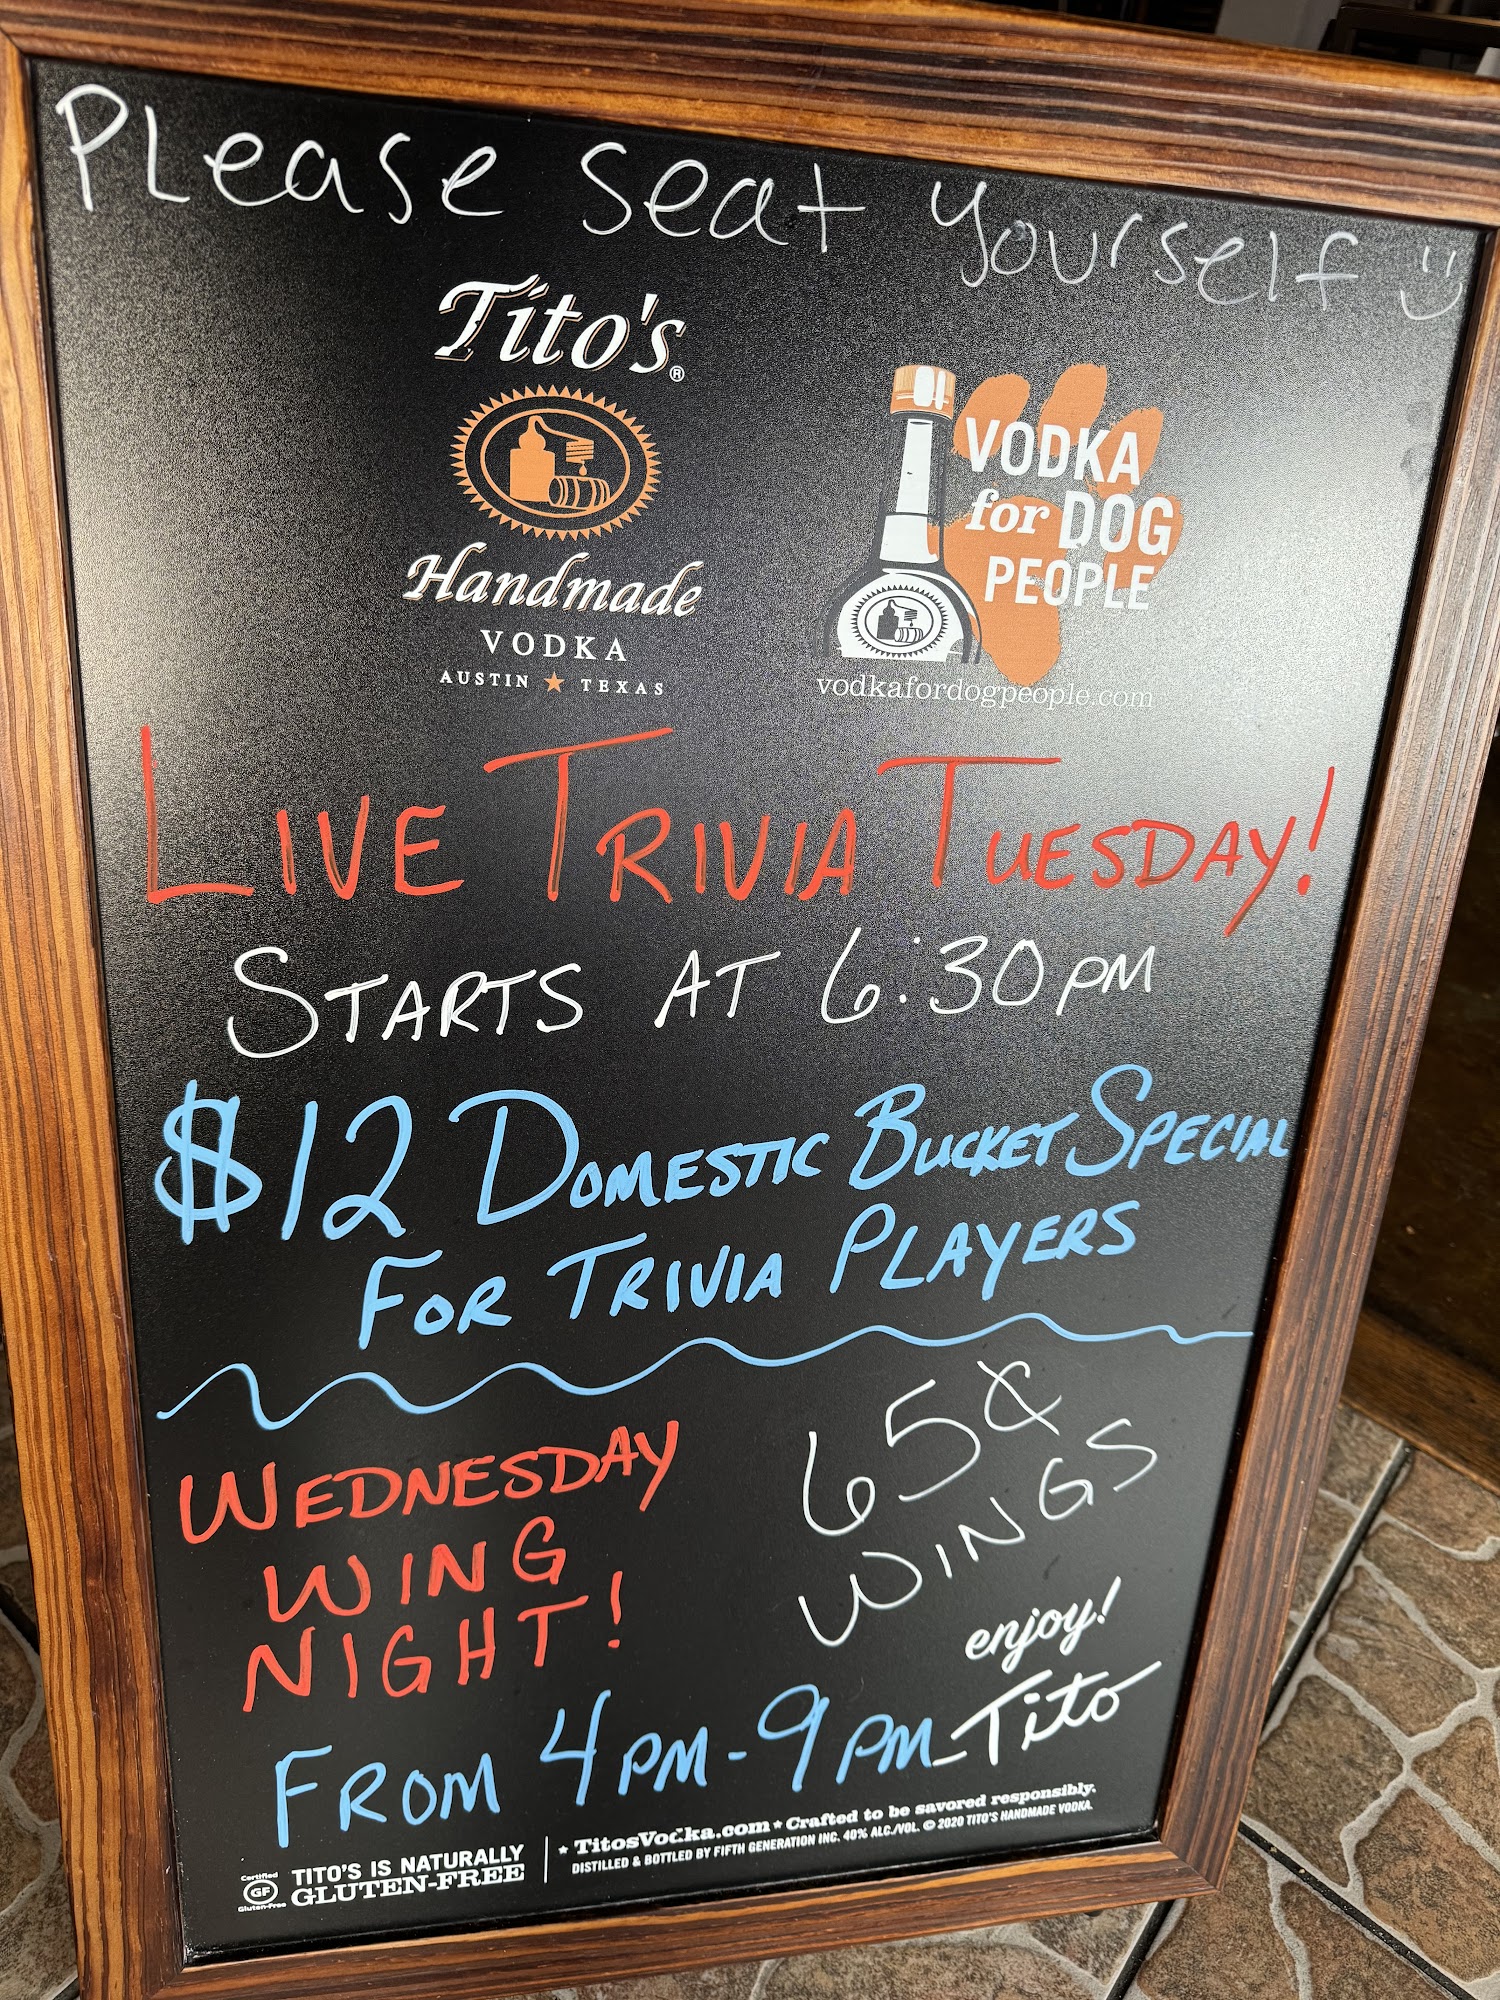 Please seat yourself
Tito's®
Handmade
VODKA
AUSTIN ★ TEXAS
VODKA
for DOG
PEOPLE
vodkafordogpeople.com
LIVE TRIVIA TUESDAY!
STARTS AT 6:30PM
$12 DOMESTIC BUCKET SPECIAL
FOR TRIVIA PLAYERS
WEDNESDAY
WING
NIGHT!
65¢
WINGS
FROM 4PM-9PM
enjoy!
-Tito
Certified
GF
Gluten-Free
TITO'S IS NATURALLY
GLUTEN-FREE
★ TitosVodka.com ★ Crafted to be savored responsibly.
DISTILLED & BOTTLED BY FIFTH GENERATION INC. 40% ALC./VOL. © 2020 TITO'S HANDMADE VODKA.